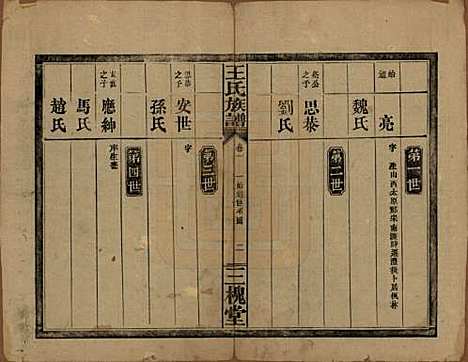 第一世
始祖
亮
字
魏氏
第二世
亮公之子
思恭
劉氏
王氏族譜
卷一
二
三槐堂
第三世
思恭之子
安世
字
孫氏
第四世
安世之子
應紳
字生
馬氏
趙氏